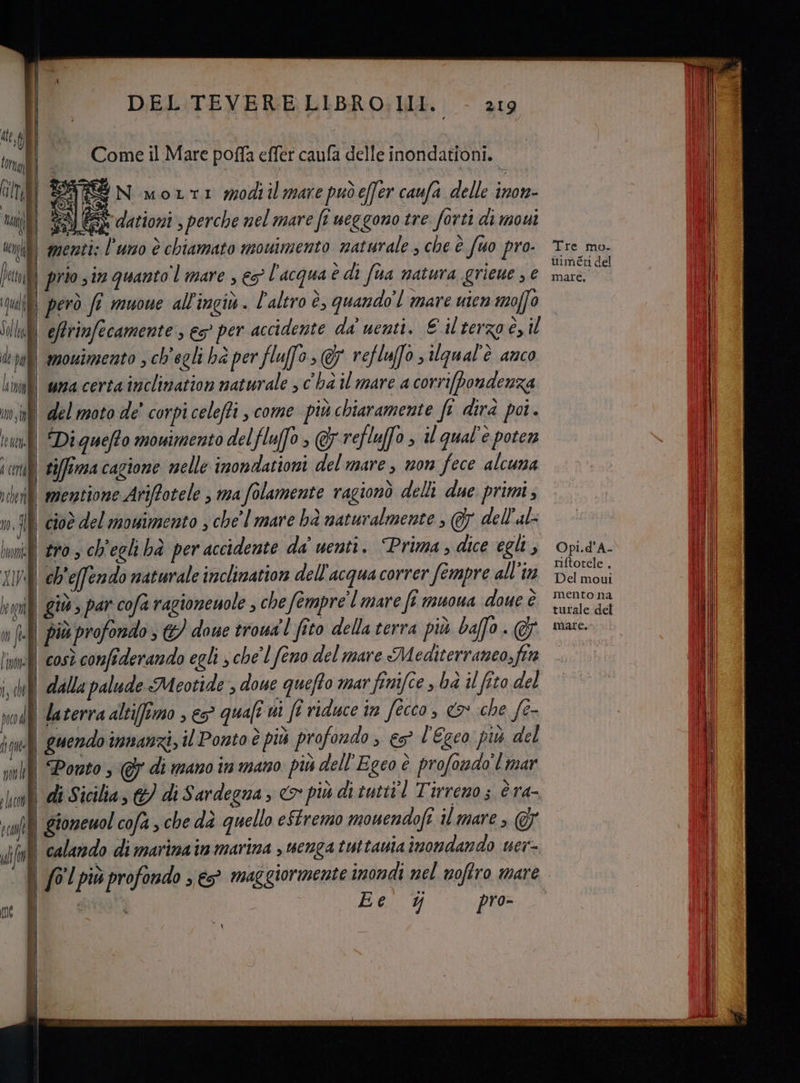 DEL TEVERE LIBRO. III. 219
Come il Mare poſſa eſſer cauſa delle inondationi.
IN MOLTI modi il mare può eſſer cauſa delle inon-
dationi, perche nel mare ſi ueggono tre ſorti di moui
menti: l'uno è chiamato mouimento naturale, che è ſuo pro-
prio, in quanto'l mare, & l'acqua è di ſua natura grieue, e
però ſi muoue all'ingiù. l'altro è, quando'l mare uien moſſo
eſtrinſecamente, & per accidente da uenti. E il terzo è, il
mouimento, ch'egli hà per fluſſo, & refluſſo, ilqual'è anco
una certa inclination naturale, c'hà il mare a corriſpondenza
del moto de' corpi celeſti, come più chiaramente ſi dirà poi.
Di queſto mouimento del fluſſo, & refluſſo, il qual'è poten
tiſſima cagione nelle inondationi del mare, non fece alcuna
mentione Ariſtotele, ma ſolamente ragionò delli due primi,
cioè del mouimento, che'l mare hà naturalmente, & dell'al-
tro, ch'egli hà per accidente da' uenti. Prima, dice egli,
ch'eſſendo naturale inclination dell'acqua correr ſempre all'in
giù, par coſa ragioneuole, che ſempre'l mare ſi muoua doue è
più profondo, & doue troua'l ſito della terra più baſſo. &
così conſiderando egli, che'l ſeno del mare Mediterraneo, fin
dalla palude Meotide, doue queſto mar finiſce, hà il ſito del
la terra altiſſimo, & quaſi ui ſi riduce in ſecco, & che ſe-
guendo innanzi, il Ponto è più profondo, & l'Egeo più del
Ponto, & di mano in mano più dell'Egeo è profondo'l mar
di Sicilia, & di Sardegna, & più di tutti'l Tirreno; è ra-
gioneuol coſa, che dà quello eſtremo mouendoſi il mare, &
calando di marina in marina, uenga tuttauia inondando uer-
ſo'l più profondo, & maggiormente inondi nel noſtro mare
Ee ij pro-
Tre mo-
uimēti del
mare.
Opi.d'A-
riſtotele.
Del moui
mento na
turale del
mare.